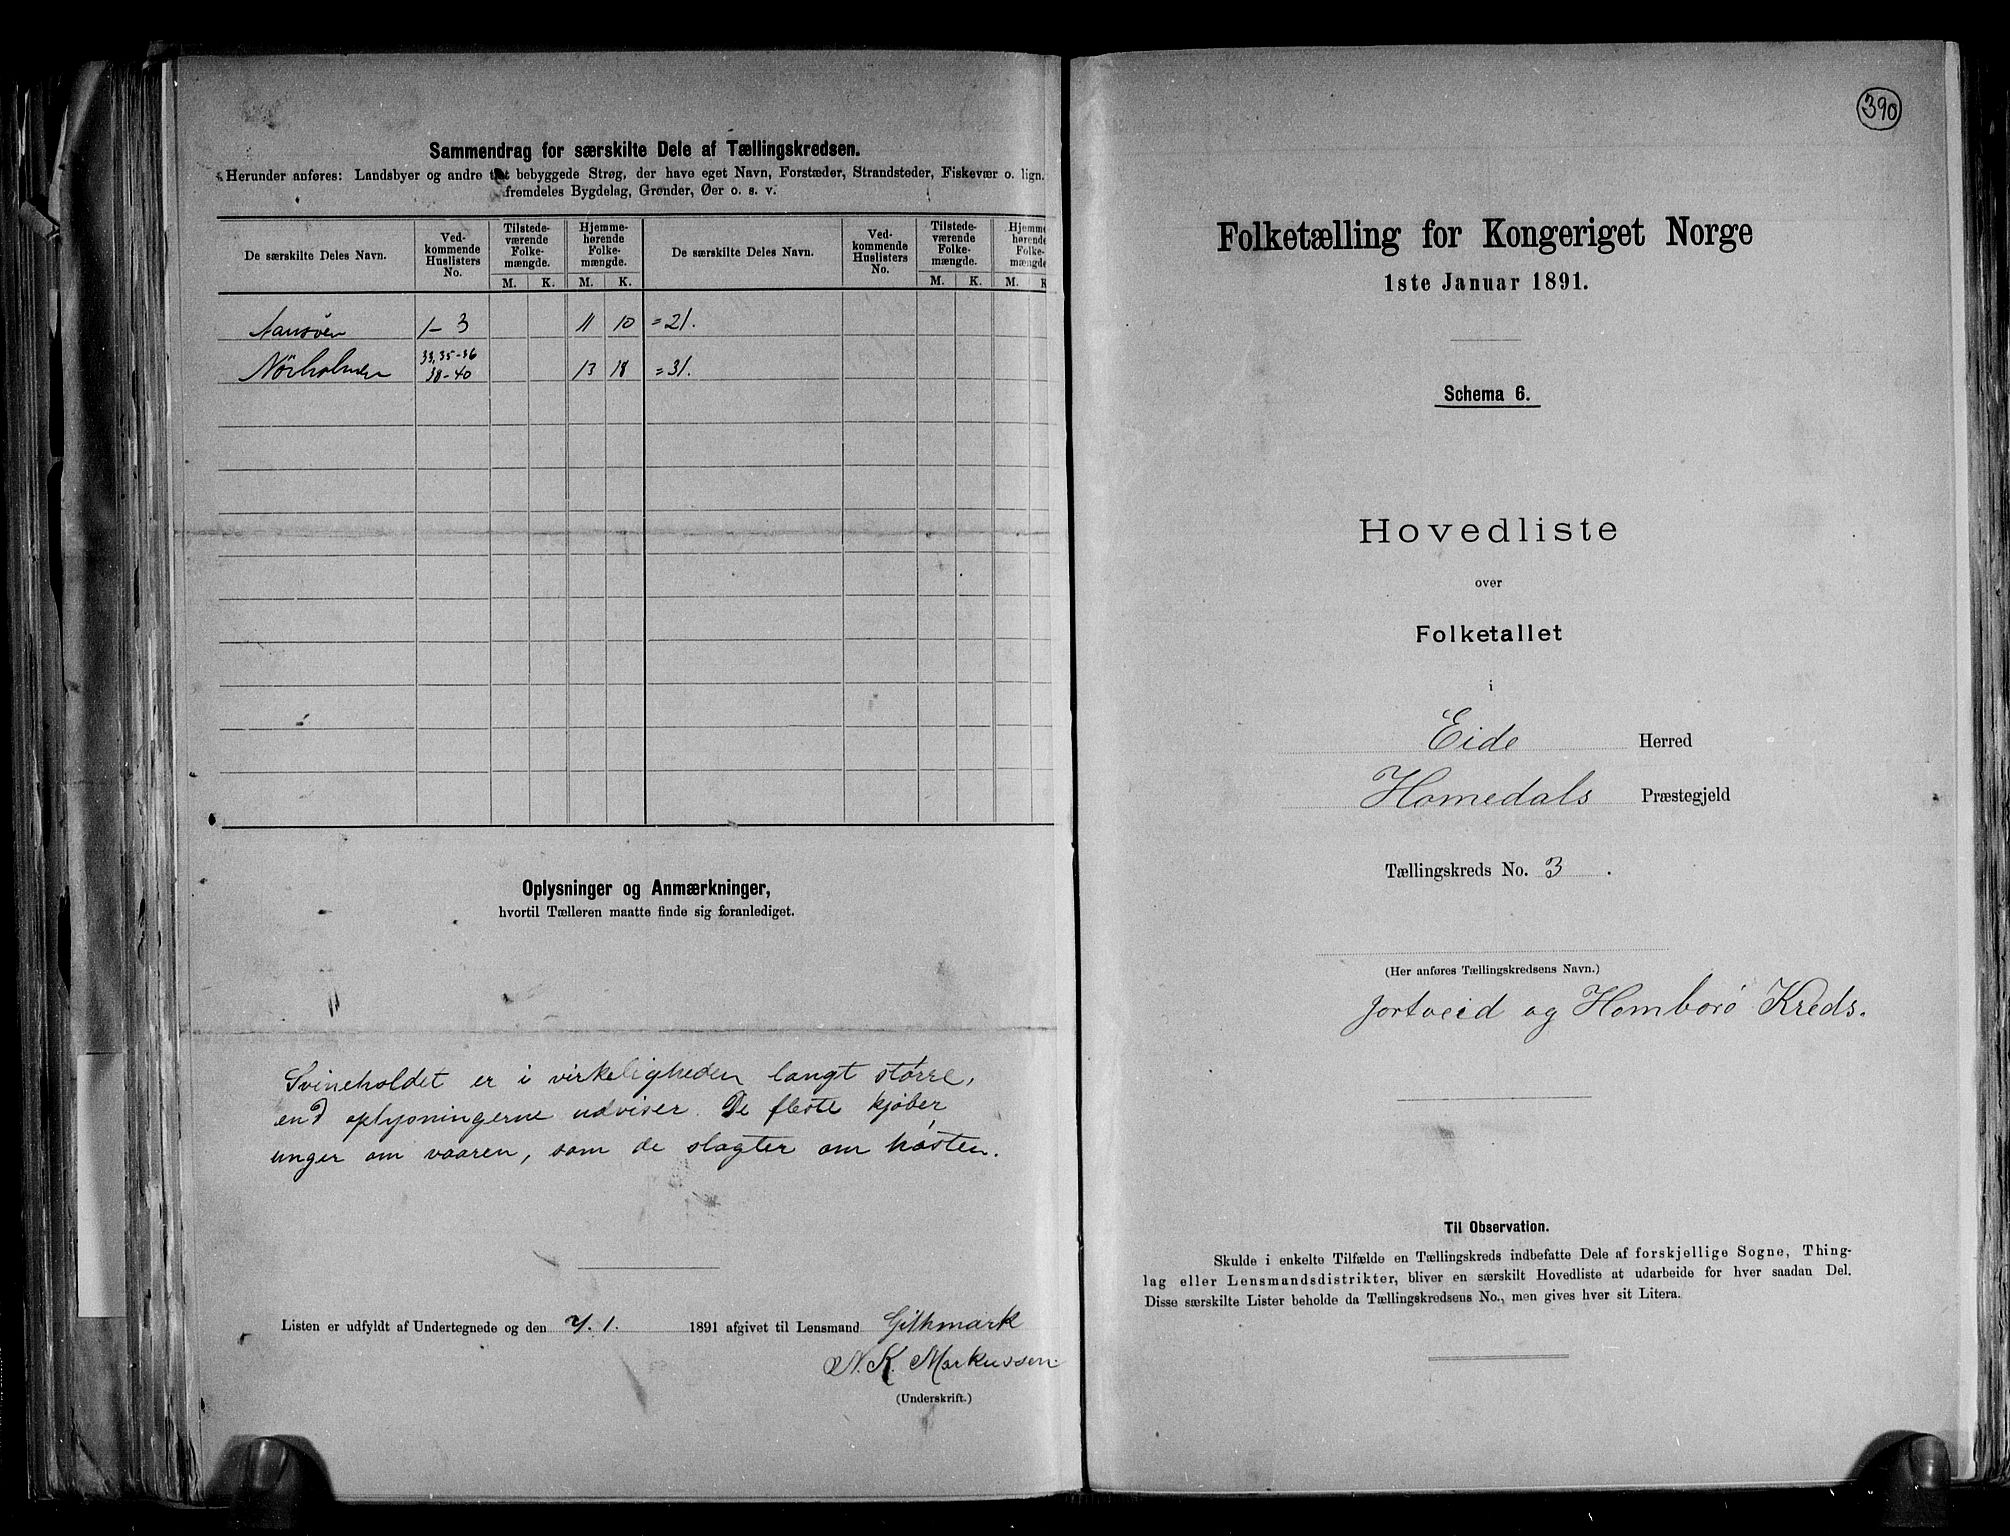 Sammendrag for særskilte Dele af Tællingskredsen.
Herunder anføres: Landsbyer og andre tæt bebyggede Strøg, der have eget Navn, Forstæder, Strandsteder, Fiskevær o. lign.
fremdeles Bygdelag, Grender, Øer o. s. v.
De særskilte Deles Navn.
Ved-
kommende
Huslisters
No.
Tilstede-
værende
Folke-
mængde.
Hjemme-
hørende
Folke-
mængde.
De særskilte Deles Navn.
Ved-
kommende
Huslisters
No.
Tilstede-
værende
Folke-
mængde.
Hjemme-
hørende
Folke-
mængde
M. K. M. K. M. K. M. K
1-3 11 10 =21.
Nörholmen 33, 35-36
38-40 13 18 =31.
Oplysninger og Anmærkninger,
hvortil Tælleren maatte finde sig foranlediget.
Svineholdet er i virkeligheden langt större,
end oplysningerne udviser. De fleste kjøber
unger om vaaren, som de slagter om hösten.
Listen er udfyldt af Undertegnede og den 1891 afgivet til Lensmand Githmark
N. K. Markussen
(Underskrift.)
390
Folketælling for Kongeriget Norge
1ste Januar 1891.
Schema 6.
Hovedliste
over
Folketallet
i
Eide Herred
Homedals Præstegjeld
Tællingskreds No. 3.
(Her anføres Tællingskredsens Navn.)
Jortveid og Homborö Kreds.
Til Observation.
Skulde i enkelte Tilfælde en Tællingskreds indbefatte Dele af forskjellige Sogne, Thing-
lag eller Lensmandsdistrikter, bliver en særskilt Hovedliste at udarbeide for hver saadan Del.
Disse særskilte Lister beholde da Tællingskredsens No., men gives hver sit Litera.